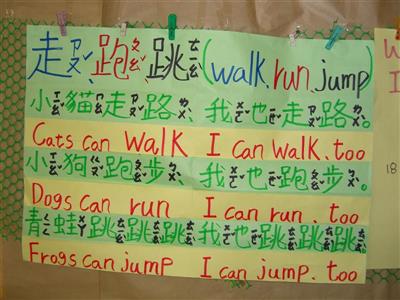 走ㄗㄡˇ跑ㄆㄠˇ跳ㄊㄧㄠˋ(walk.run.jump)
小ㄒㄧㄠˇ貓ㄇㄠ走ㄗㄡˇ路ㄌㄨˋ。 我ㄨㄛˇ也ㄧㄝˇ走ㄗㄡˇ路ㄌㄨˋ。
Cats can walk I can walk. too
小ㄒㄧㄠˇ狗ㄍㄡˇ跑ㄆㄠˇ步ㄅㄨˋ。 我ㄨㄛˇ也ㄧㄝˇ跑ㄆㄠˇ步ㄅㄨˋ。
Dogs can run I can run. too
青ㄑㄧㄥ蛙ㄨㄚ跳ㄊㄧㄠˋ跳ㄊㄧㄠˋ跳ㄊㄧㄠˋ我ㄨㄛˇ也ㄧㄝˇ跳ㄊㄧㄠˋ跳ㄊㄧㄠˋ跳ㄊㄧㄠˋ
Frogs can jump I can jump. too
W
I
18